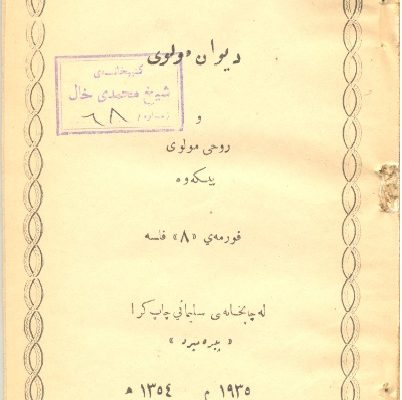 دیوان مولوی
کتبخانەی
شیخ محمدی خال
ژمارە / ٦٨
و
روحی مولوی
پیکەوە
فورمەی «٨» فلسە
لە چاپخانەی سلیمانی چاپ کرا
« پیرەمیرد »
١٩٣٥ م ١٣٥٤ ھ